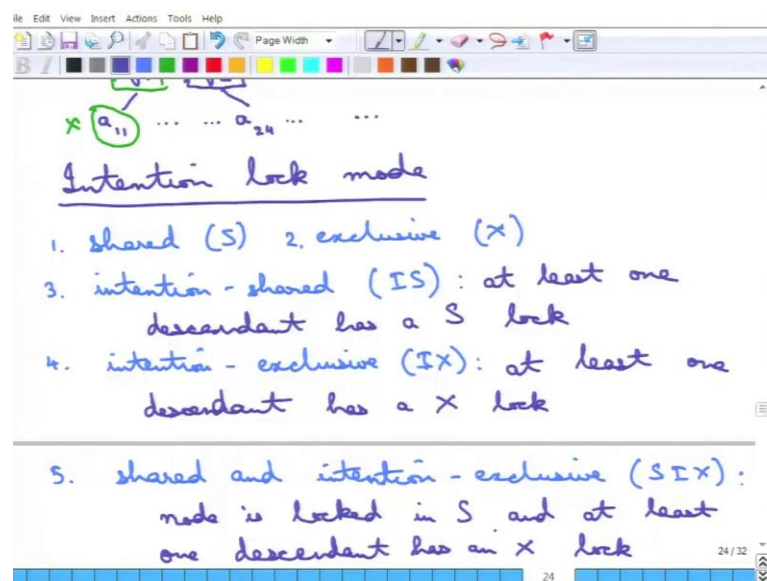 ile Edit View Insert Actions Tools Help
Page Width
B I
x a11 ... ... a24 ... ...
Intention lock mode
1. shared (S) 2. exclusive (X)
3. intention - shared (IS) : at least one
descendant has a S lock
4. intention - exclusive (IX) : at least one
descendant has a X lock
5. shared and intention - exclusive (SIX) :
node is locked in S and at least
one descendant has an X lock
24 / 32
24